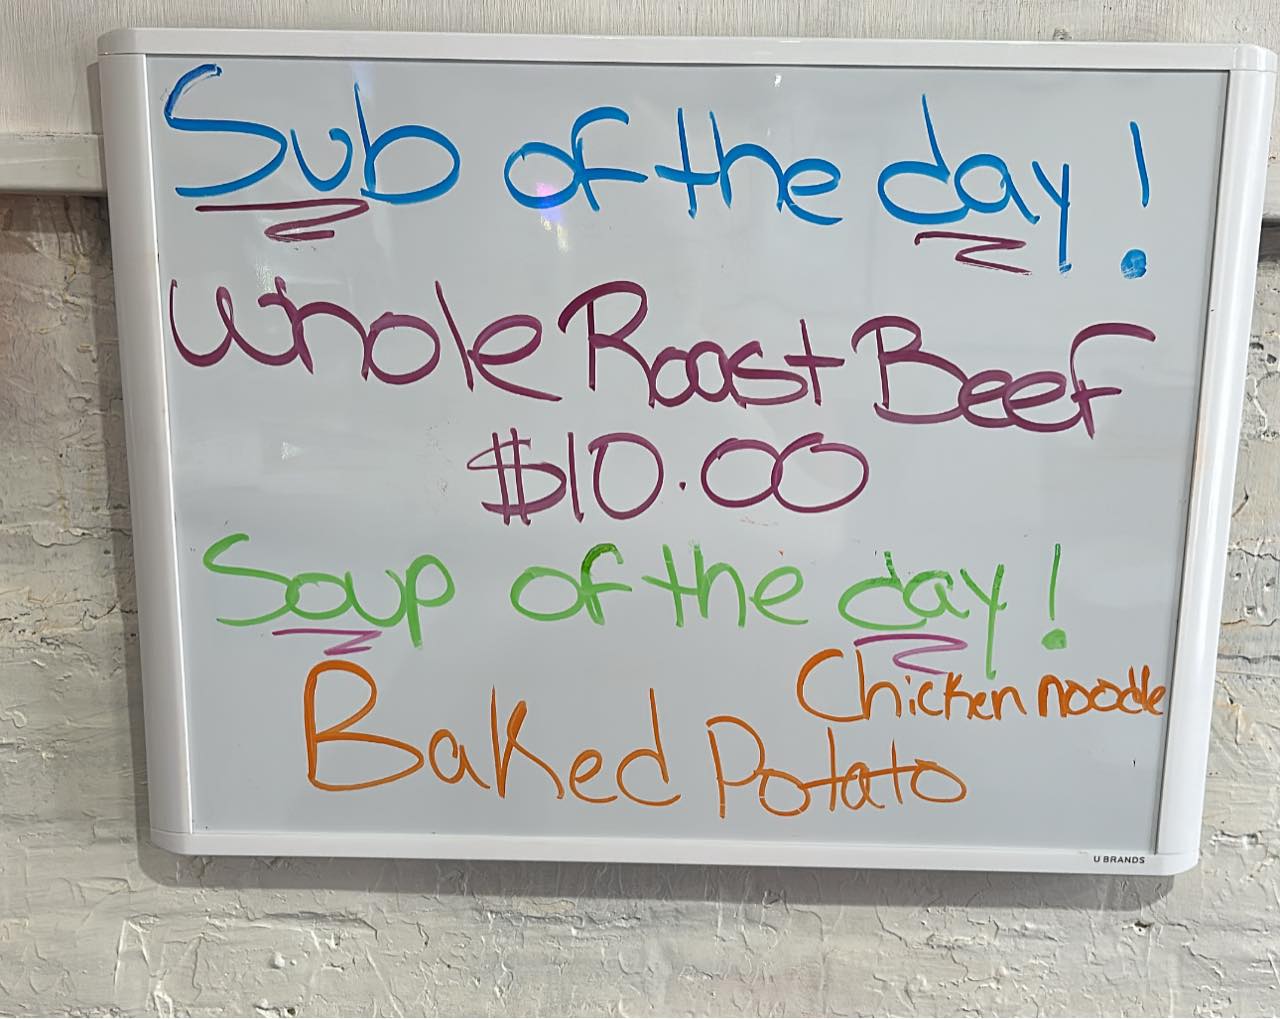 Sub of the day!
Whole Roast Beef
$10.00
Soup of the day!
Chicken noodle
Baked Potato
U BRANDS